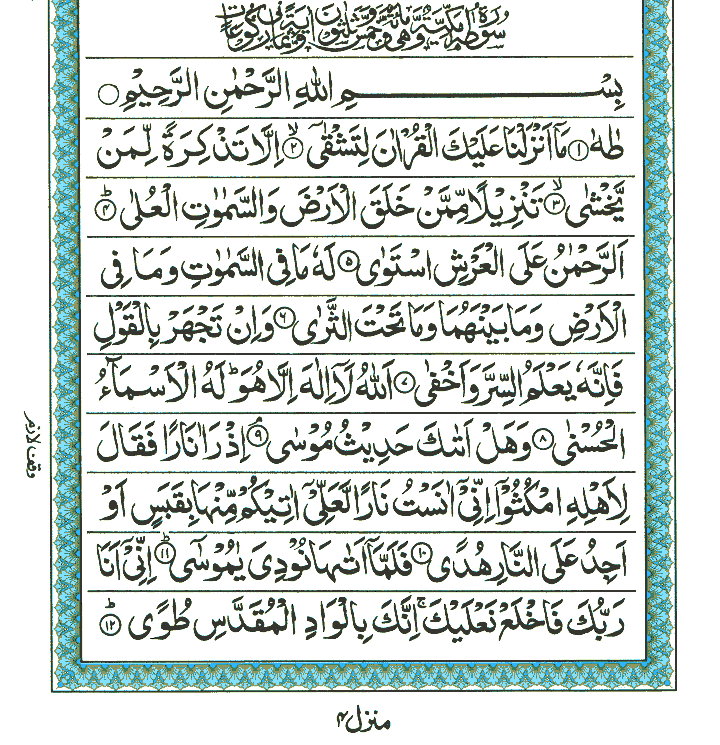 سورة طه مكية وهي مائة وخمس وثلثون اية وثمان ركوعات
بِسْمِ اللهِ الرَّحْمٰنِ الرَّحِيْمِ
طٰهٰ ﴿١﴾ مَاۤ اَنْزَلْنَا عَلَيْكَ الْقُرْاٰنَ لِتَشْقٰۤى ﴿٢﴾ اِلَّا تَذْكِرَةً لِّمَنْ
يَّخْشٰى ﴿٣﴾ تَنْزِيْلًا مِّمَّنْ خَلَقَ الْاَرْضَ وَالسَّمٰوٰتِ الْعُلٰى ﴿٤﴾
اَلرَّحْمٰنُ عَلَى الْعَرْشِ اسْتَوٰى ﴿٥﴾ لَهٗ مَا فِى السَّمٰوٰتِ وَمَا فِى
الْاَرْضِ وَمَا بَيْنَهُمَا وَمَا تَحْتَ الثَّرٰى ﴿٦﴾ وَاِنْ تَجْهَرْ بِالْقَوْلِ
فَاِنَّهٗ يَعْلَمُ السِّرَّ وَاَخْفٰى ﴿٧﴾ اَللهُ لَاۤ اِلٰهَ اِلَّا هُوَ ؕ لَهُ الْاَسْمَآءُ
الْحُسْنٰى ﴿٨﴾ وَهَلْ اَتٰىكَ حَدِيْثُ مُوْسٰى ﴿٩﴾ اِذْ رَاٰ نَارًا فَقَالَ
لِاَهْلِهِ امْكُثُوْۤا اِنِّىْۤ اٰنَسْتُ نَارًا لَّعَلِّىْۤ اٰتِيْكُمْ مِّنْهَا بِقَبَسٍ اَوْ
اَجِدُ عَلَى النَّارِ هُدًى ﴿١٠﴾ فَلَمَّاۤ اَتٰىهَا نُوْدِىَ يٰمُوْسٰى ﴿١١﴾ اِنِّىْۤ اَنَا
رَبُّكَ فَاخْلَعْ نَعْلَيْكَ ۚ اِنَّكَ بِالْوَادِ الْمُقَدَّسِ طُوًى ﴿١٢﴾
وقف لازم
منزل ۴